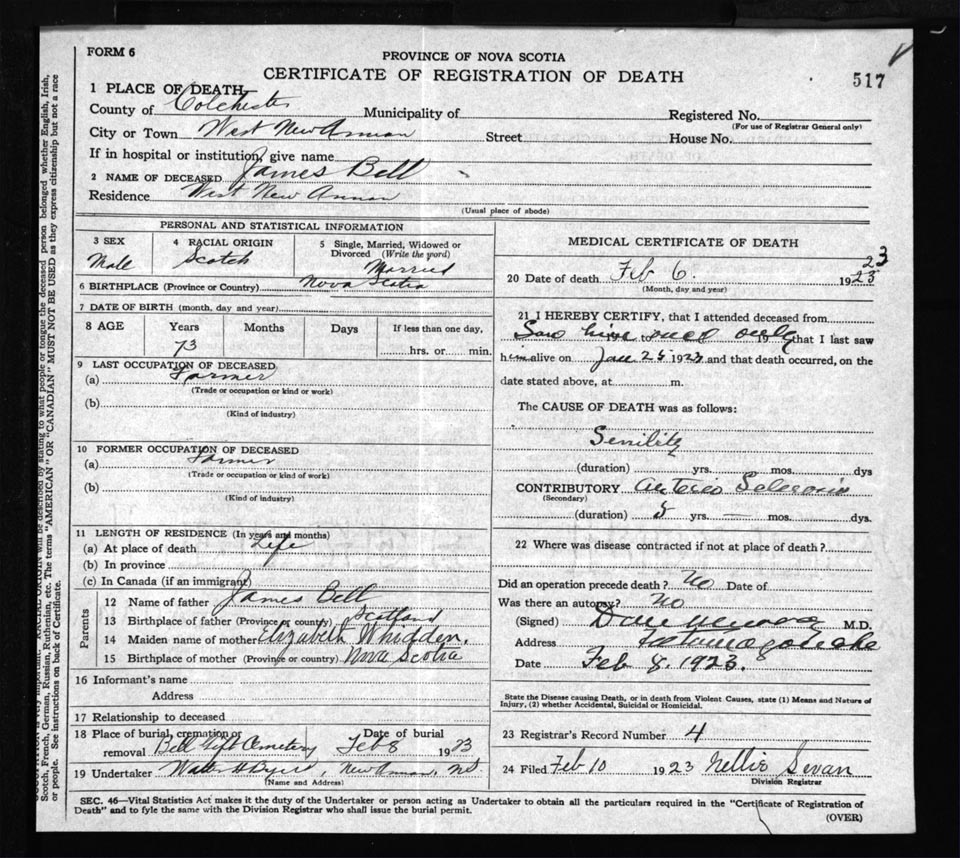 FORM 6
PROVINCE OF NOVA SCOTIA
CERTIFICATE OF REGISTRATION OF DEATH
517
1 PLACE OF DEATH
County of Colchester Municipality of Registered No.
(For use of Registrar General only)
City or Town West New Annan Street House No.
If in hospital or institution, give name
2 NAME OF DECEASED James Bell
Residence West New Annan
(Usual place of abode)
PERSONAL AND STATISTICAL INFORMATION
3 SEX Male
4 RACIAL ORIGIN Scotch
5 Single, Married, Widowed or Divorced (Write the word) Married
6 BIRTHPLACE (Province or Country) Nova Scotia
7 DATE OF BIRTH (month, day and year)
8 AGE Years Months Days If less than one day,
73 hrs. or min.
9 LAST OCCUPATION OF DECEASED
(a) Farmer
(Trade or occupation or kind or work)
(b)
(Kind of industry)
10 FORMER OCCUPATION OF DECEASED
(a) Farmer
(Trade or occupation or kind of work)
(b)
(Kind of industry)
11 LENGTH OF RESIDENCE (In years and months)
(a) At place of death Life
(b) In province
(c) In Canada (if an immigrant)
Parents
12 Name of father James Bell
13 Birthplace of father (Province or country) Scotland
14 Maiden name of mother Elizabeth Whidden.
15 Birthplace of mother (Province or country) Nova Scotia
16 Informant's name
Address
17 Relationship to deceased
18 Place of burial, cremation or removal Bell Cemetery Date of burial Feb 8 1923
19 Undertaker New Annan, NS
(Name and Address)
MEDICAL CERTIFICATE OF DEATH
20 Date of death Feb 6. 1923 23
(Month, day and year)
21 I HEREBY CERTIFY, that I attended deceased from
Saw him once only 19 that I last saw
him alive on Jan 25 1923 and that death occurred, on the
date stated above, at m.
The CAUSE OF DEATH was as follows:
Senility
(duration) yrs. mos. dys
CONTRIBUTORY Arterio Sclerosis
(Secondary)
(duration) 5 yrs. — mos. dys.
22 Where was disease contracted if not at place of death?
Did an operation precede death? No Date of
Was there an autopsy? No
(Signed) Dan Murray M.D.
Address Tatamagouche
Date Feb 8. 1923.
State the Disease causing Death, or in death from Violent Causes, state (1) Means and Nature of
Injury, (2) whether Accidental, Suicidal or Homicidal.
23 Registrar's Record Number 4
24 Filed Feb 10 1923 Nellie Swan
Division Registrar
SEC. 46—Vital Statistics Act makes it the duty of the Undertaker or person acting as Undertaker to obtain all the particulars required in the "Certificate of Registration of
Death" and to fyle the same with the Division Registrar who shall issue the burial permit.
(OVER)
Scotch, French, German, Russian, Ruthenian, etc. The terms "AMERICAN" OR "CANADIAN" MUST NOT BE USED as they express citizenship but not a race
or people. See instructions on back of Certificate.